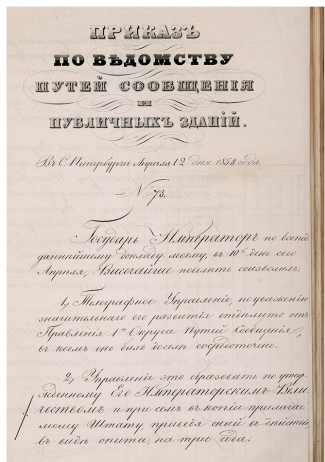 ПРИКАЗЪ
ПО ВѢДОМСТВУ
ПУТЕЙ СООБЩЕНІЯ
И
ПУБЛИЧНЫХЪ ЗДАНІЙ.
Въ С. Петербургѣ Апрѣля 12 дня 1858 года
№ 73.
Государь Императоръ по всепод
даннѣйшему докладу моему, въ 10й день сего
Апрѣля, Высочайше повелѣть соизволилъ:
1, Телеграфное Управленіе, по уваженію
значительнаго его развитія отдѣлить отъ
Правленія 1го Округа Путей Сообщенія,
въ коемъ оно было доселѣ сосредоточено.
2, Управленіе это образовать по утвер
жденному Его Императорскимъ Вели
чествомъ и при семъ въ копіи прилагае
мому Штату, приведя оный въ дѣйствіе
въ видѣ опыта, на три года.